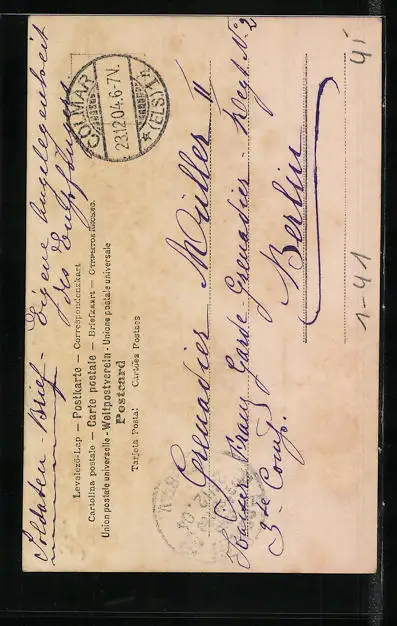 Soldaten-Brief. Eigene Angelegenheit
des Empfängers
Levelező-Lap — Postkarte — Correspondenzkart
Cartolina postale — Carte postale — Briefkaart — Открытое письмо.
Union postale universelle - Weltpostverein - Unione postale universale
Postcard
Tarjeta Postal Cartões Postaes
COLMAR
23.12.04.6-7N.
* (ELS) 1 n
Grenadier Müller II
Kaiser Franz Garde-Grenadier-Regt. No 2
3te Comp.
Berlin
1-41